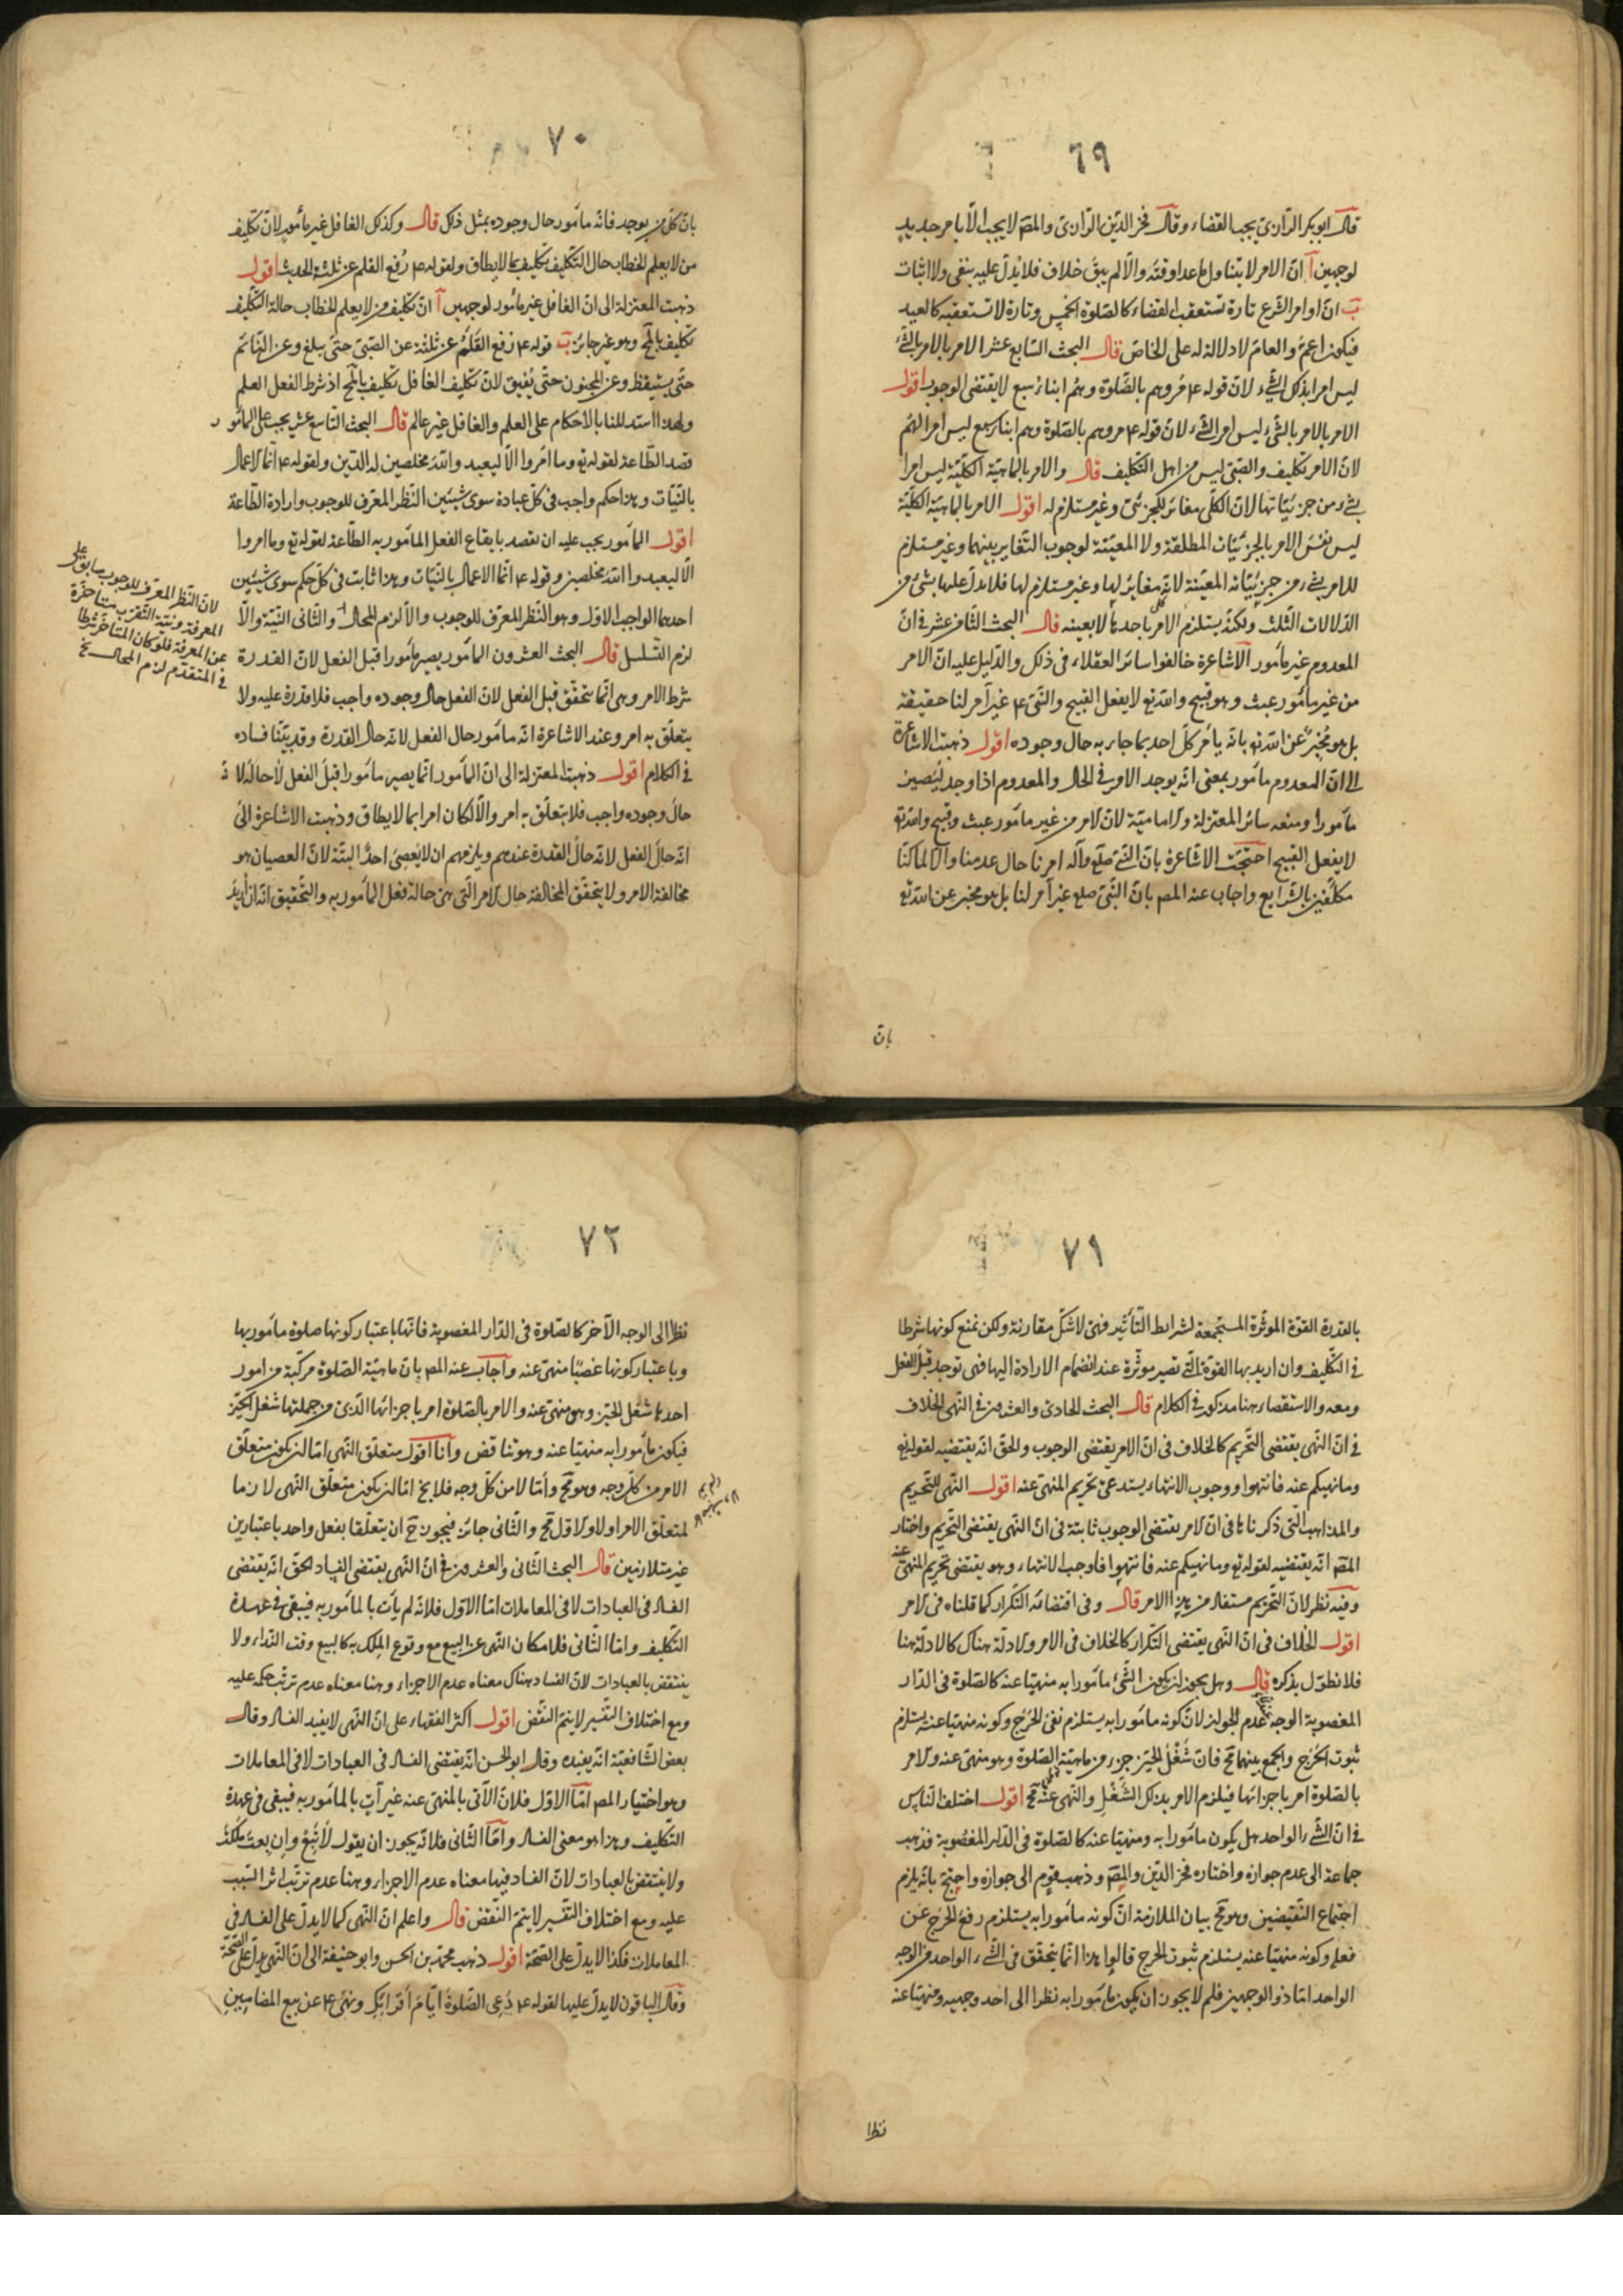 ٦٩
قال ابو بكر الرازى يجب القضاء وقال فخر الدين الرازى والمصـ لا يجب الا بامر جديد
لوجهين آ ان الامر لا يتناول ما عدا وقته والا لم يبق خلاف فلا يدل عليه بنفى ولا اثبات
ب ان اوامر الشرع تارة تستعقب القضاء كالصلوة الخمس وتارة لا تستعقبه كالعيد
فيكون اعم والعام لا دلالة له على الخاص قال البحث السابع عشر الامر بالامر بالشئ
ليس امرا بذلك الشئ لان قوله ء م مروهم بالصلوة وهم ابناء سبع لا يقتضى الوجوب اقول
الامر بالامر بالشئ ليس امرا لشئ لان قوله ء م مروهم بالصلوة وهم ابناء سبع ليس امرا لهم
لان الامر تكليف والصبى ليس من اهل التكليف قال والامر بالماهية الكلية ليس امرا
بشئ من جزئياتها لان الكلى مغائر للجزئى وغير مستلزم له اقول الامر بالماهية الكلية
ليس نفس الامر بالجزئيات المطلقة ولا المعينة لوجوب التغاير بينهما وغير مستلزم
للامر بشئ من جزئياته المعينة لانه مغاير لها وغير مستلزم لها فلا يدل عليها بشئ من
الدلالات الثلث ولكنه يستلزم الامر باحدها لا بعينه قال البحث الثامن عشر فى ان
المعدوم غير مأمور الاشاعرة خالفوا سائر العقلاء فى ذلك والدليل عليه ان الامر
من غير مأمور عبث وهو قبيح والله تع لا يفعل القبيح والنبى ء م غير آمر لنا حقيقة
بل هو مخبر عن الله تع بانه يأمر كل احد بما جاء به حال وجوده اقول ذهبت الاشاعرة
الى ان المعدوم مأمور بمعنى انه يوجد الامر فى الحال والمعدوم اذا وجد ليصير
مأمورا ومنعه سائر المعتزلة والامامية لان الامر من غير مأمور عبث وقبيح والله تع
لا يفعل القبيح احتجت الاشاعرة بان النبى صلع وآله امرنا حال عدمنا والا لما كنا
مكلفين بالشرايع واجاب عنه المصـ بان النبى صلع غير آمر لنا بل هو مخبر عن الله تع
بان
٧٠
بان كل من يوجد فانه مأمور حال وجوده بمثل ذلك قال وكذلك الغافل غير مأمور لان تكليف
من لا يعلم الخطاب حال التكليف تكليف بما لا يطاق ولقوله ء م رفع القلم عن ثلثة الحديث اقول
ذهبت المعتزلة الى ان الغافل غير مأمور لوجهين آ ان تكليف من لا يعلم الخطاب حالة التكليف
تكليف بالمح وهو غير جائز ب قوله ء م رفع القلم عن ثلثة عن الصبى حتى يبلغ وعن النائم
حتى يستيقظ وعن المجنون حتى يفيق لان تكليف الغافل تكليف بالمح اذ شرط الفعل العلم
ولهذا استدللنا بالاحكام على العلم والغافل غير عالم قال البحث التاسع عشر يجب على المأمور
قصد الطاعة لقوله تع وما امروا الا ليعبدوا الله مخلصين له الدين ولقوله ء م انما الاعمال
بالنيات وهذا حكم واجب فى كل عبادة سوى شيئين النظر المعرف للوجوب وارادة الطاعة
اقول المأمور يجب عليه ان يقصد بايقاع الفعل المأمور به الطاعة لقوله تع وما امروا
الا ليعبدوا الله مخلصين وقوله ء م انما الاعمال بالنيات وهذا ثابت فى كل حكم سوى شيئين
احدهما الواجب الاول وهو النظر المعرف للوجوب والا لزم المحال والثانى النية والا
لزم التسلسل قال البحث العشرون المأمور يصير مأمورا قبل الفعل لان القدرة
شرط الامر وهى انما تتحقق قبل الفعل لان الفعل حال وجوده واجب فلا قدرة عليه ولا
يتعلق به امر وعند الاشاعرة انه مأمور حال الفعل لانه حال القدرة وقد بينا فساده
فى الكلام اقول ذهبت المعتزلة الى ان المأمور انما يصير مأمورا قبل الفعل لا حاله لانه
حال وجوده واجب فلا يتعلق به امر والا لكان امرا بما لا يطاق وذهبت الاشاعرة الى
انه حال الفعل لانه حال القدرة عندهم ويلزمهم ان لا يعصى احد البتة لان العصيان هو
مخالفة الامر ولا يتحقق المخالفة حال الامر التى هى حالة فعل المأمور به والتحقيق انه ان اريد
لان النظر المعرف للوجوب سابق على
المعرفة ونية التقرب متأخرة
عن المعرفة فلو كان المتأخر شرطا
فى المتقدم لزم المحال
٧١
بالقدرة القوة الموثرة المستجمعة لشرايط التأثير فهى لا شك مقارنة ولكن نمنع كونها شرطا
فى التكليف وان اريد بها القوة التى تصير موثرة عند انضمام الارادة اليها فهى توجد قبل الفعل
ومعه والاستقصاء هنا مذكور فى الكلام قال البحث الحادى والعشرون فى النهى الخلاف
فى ان النهى يقتضى التحريم كالخلاف فى ان الامر يقتضى الوجوب والحق انه يقتضيه لقوله تع
وما نهيكم عنه فانتهوا ووجوب الانتهاء يستدعى تحريم المنهى عنه اقول النهى للتحريم
والمذاهب التى ذكرناها فى ان الامر يقتضى الوجوب ثابتة فى ان النهى يقتضى التحريم واختار
المصـ انه يقتضيه لقوله تع وما نهيكم عنه فانتهوا فاوجب الانتهاء وهو يقتضى تحريم المنهى عنه
وفيه نظر لان التحريم مستفاد من هذا الامر قال وفى اقتضائه التكرار كما قلناه فى الامر
اقول الخلاف فى ان النهى يقتضى التكرار كالخلاف فى الامر والادلة هناك كالادلة هنا
فلا نطول بذكره قال وهل يجوز ان يكون الشئ مأمورا به منهيا عنه كالصلوة فى الدار
المغصوبة الوجه عدم الجواز لان كونه مأمورا به يستلزم نفى الحرج وكونه منهيا عنه يستلزم
ثبوت الحرج والجمع بينهما مح فان شغل الحيز جزء من ماهية الصلوة وهو منهى عنه والامر
بالصلوة امر باجزائها فيلزم الامر بذلك الشغل والنهى عنه مح اقول اختلف الناس
فى ان الشئ الواحد هل يكون مأمورا به ومنهيا عنه كالصلوة فى الدار المغصوبة فذهب
جماعة الى عدم جوازه واختاره فخر الدين والمصـ وذهب قوم الى جوازه واحتج بانه يلزم
اجتماع النقيضين وهو مح بيان الملازمة ان كونه مأمورا به يستلزم رفع الحرج عن
فعله وكونه منهيا عنه يستلزم ثبوت الحرج قالوا هذا انما يتحقق فى الشئ الواحد من الوجه
الواحد اما ذو الوجهين فلم لا يجوز ان يكون مأمورا به نظرا الى احد وجهيه ومنهيا عنه
نظرا
٧٢
نظرا الى الوجه الآخر كالصلوة فى الدار المغصوبة فانها باعتبار كونها صلوة مأمور بها
وباعتبار كونها غصبا منهى عنه واجاب عنه المصـ بان ماهية الصلوة مركبة من امور
احدها شغل الحيز وهو منهى عنه والامر بالصلوة امر باجزائها الذى من جملتها شغل الحيز
فيكون مأمورا به منهيا عنه وهو تناقض وانا اقول متعلق النهى اما ان يكون متعلق
الامر من كل وجه وهو مح واما لا من كل وجه فلا يخ اما ان يكون متعلق النهى لازما
لمتعلق الامر اولا والاول مح والثانى جائز فيجوز ح ان يتعلقا بفعل واحد باعتبارين
غير متلازمين قال البحث الثانى والعشرون فى ان النهى يقتضى الفساد الحق انه يقتضى
الفساد فى العبادات لا فى المعاملات اما الاول فلانه لم يأت بالمأمور به فيبقى فى عهدة
التكليف واما الثانى فلامكان النهى عن البيع مع وقوع الملك به كالبيع وقت النداء ولا
ينتقض بالعبادات لان الفساد هناك معناه عدم الاجزاء وهنا معناه عدم ترتب حكمه عليه
ومع اختلاف التفسير لا يتم النقض اقول اكثر الفقهاء على ان النهى لا يفيد الفساد وقال
بعض الشافعية انه يفيده وقال ابو الحسن انه يقتضى الفساد فى العبادات لا فى المعاملات
وهو اختيار المصـ اما الاول فلان الآتى بالمنهى عنه غير آت بالمأمور به فيبقى فى عهدة
التكليف وهذا هو معنى الفساد واما الثانى فلانه يجوز ان يقول لا تبع وان بعت ملكت
ولا ينتقض بالعبادات لان الفساد فيها معناه عدم الاجزاء وهنا عدم ترتب اثر السبب
عليه ومع اختلاف التفسير لا يتم النقض قال واعلم ان النهى كما لا يدل على الفساد فى
المعاملات فكذا لا يدل على الصحة اقول ذهب محمد بن الحسن وابو حنيفة الى ان النهى يدل على الصحة
وقال الباقون لا يدل عليها لقوله ء م دعى الصلوة ايام اقرائك ونهى ء م عن بيع المضامين